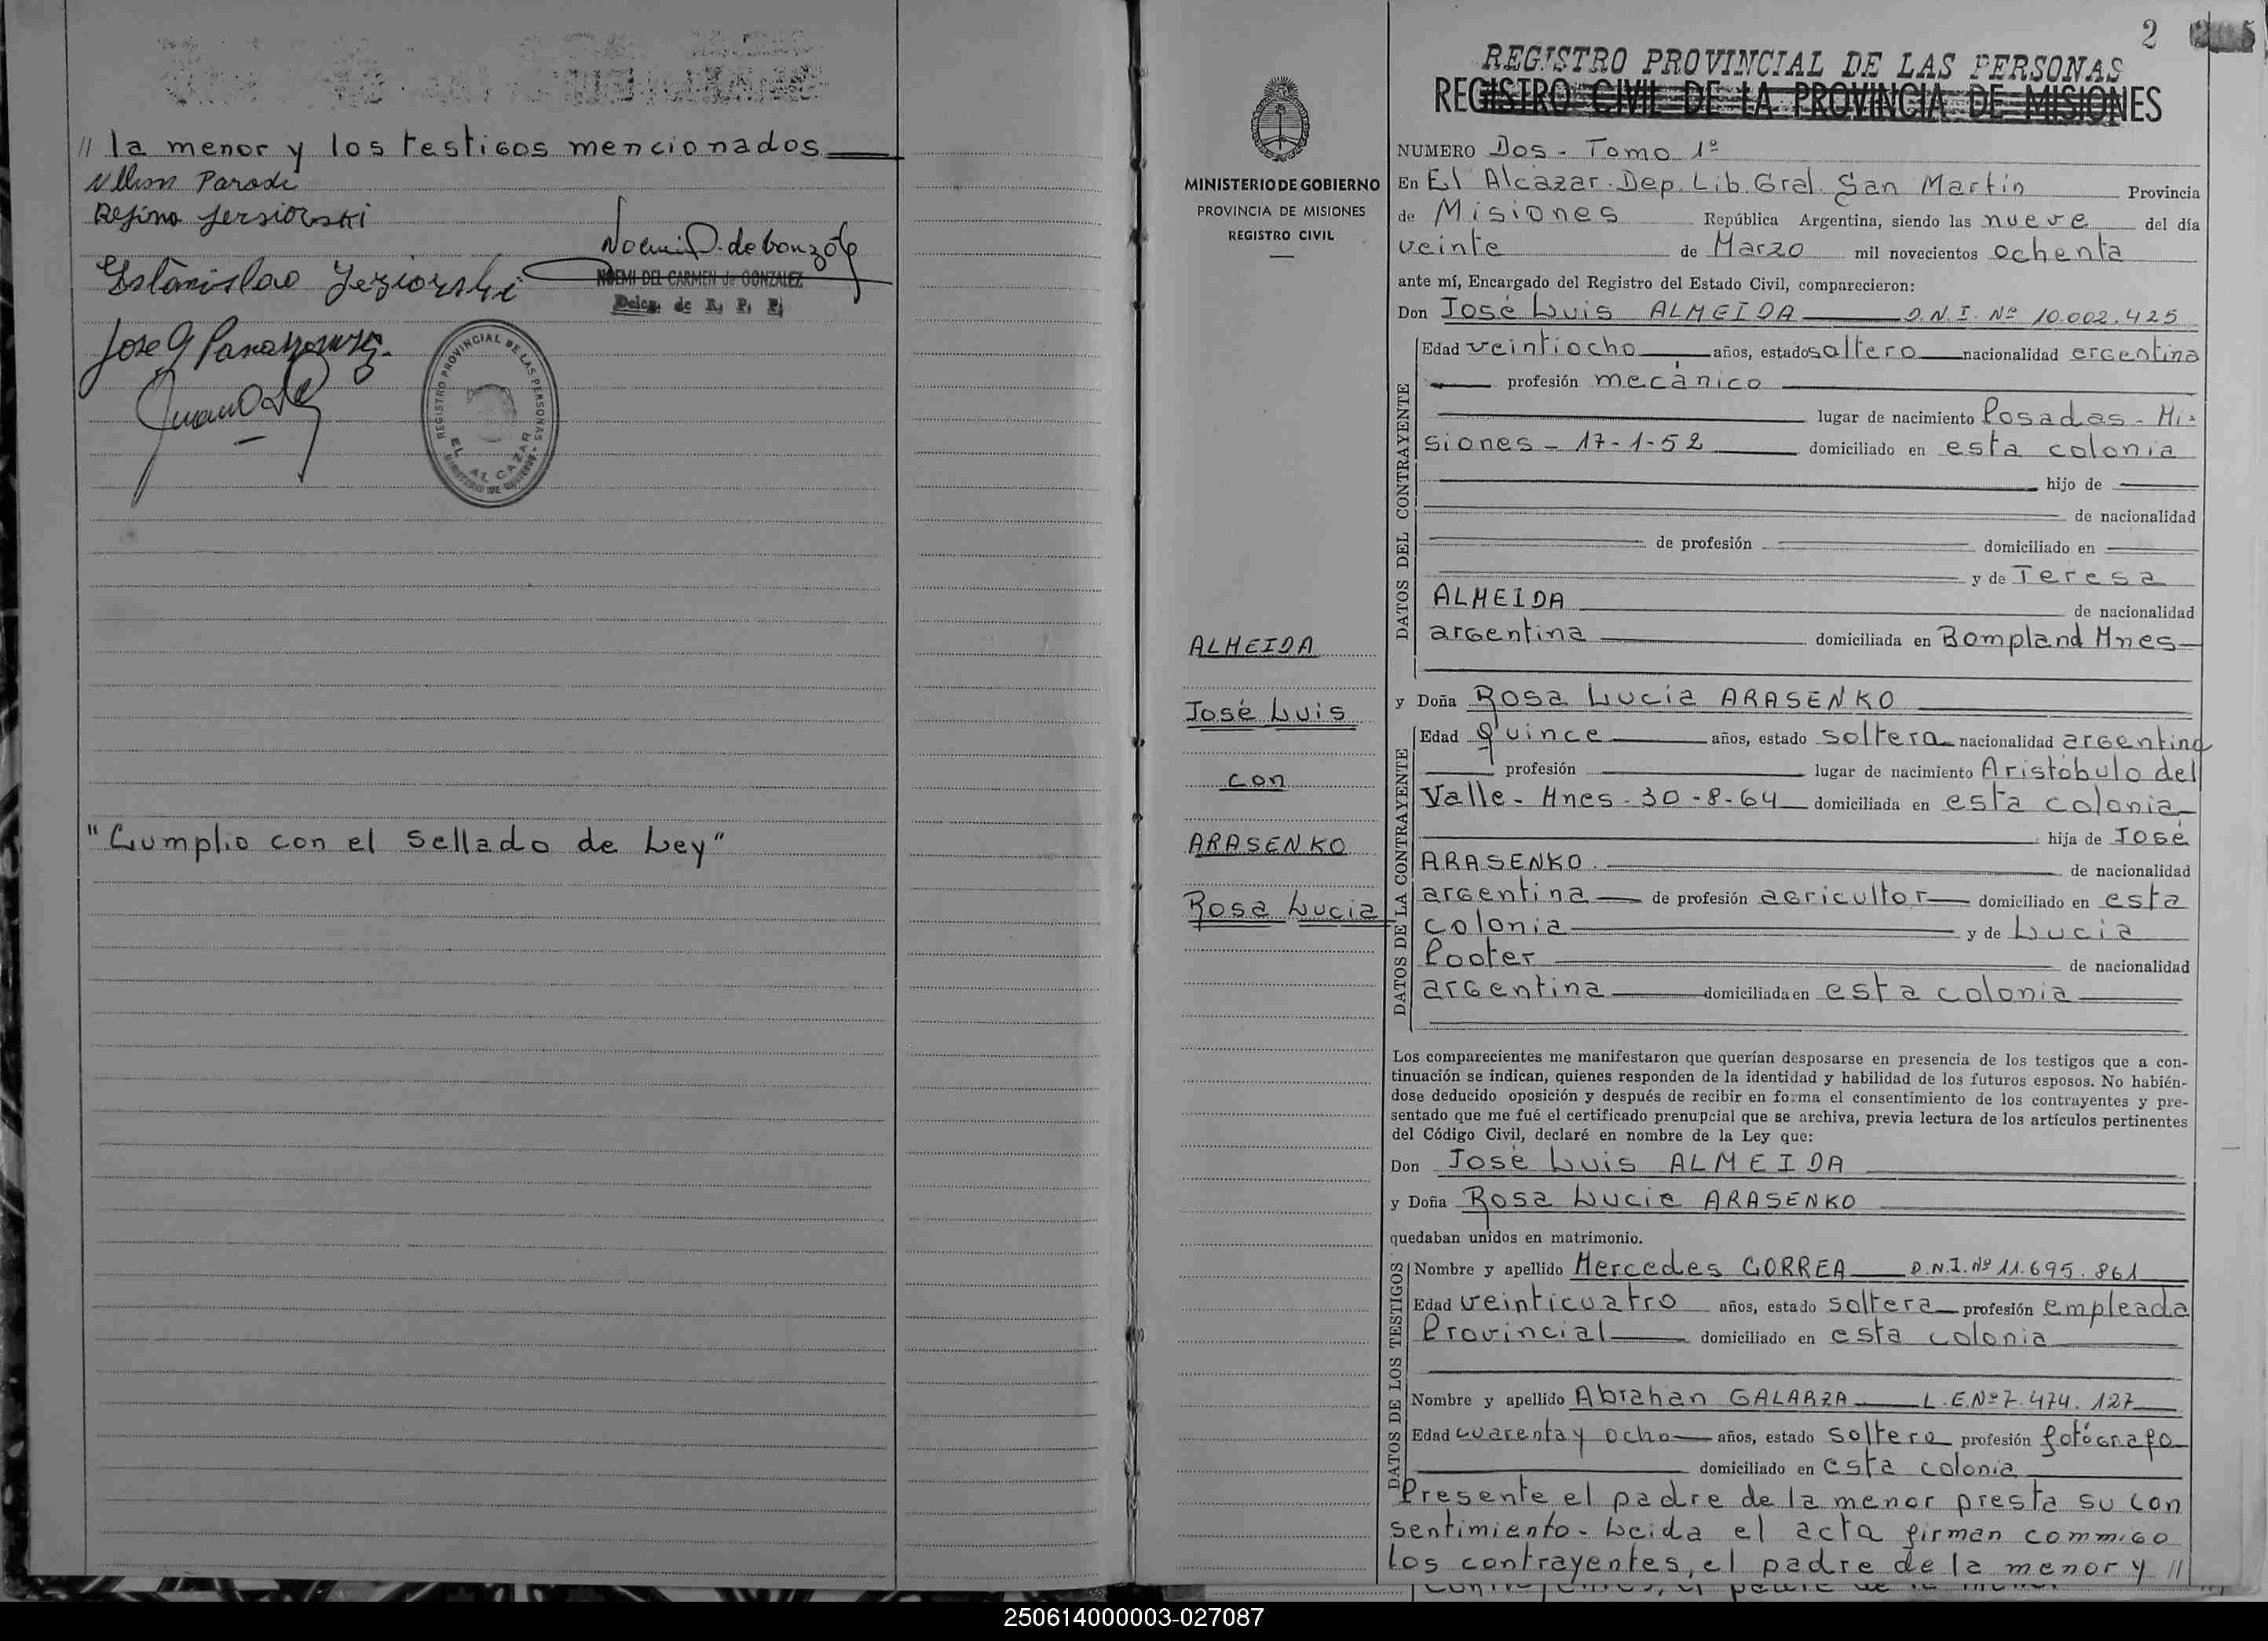 // la menor y los testigos mencionados
Nelson Parodi
Regina Jeziorski
Noemi D. de Gonzalez
Estanislao Jeziorski
NOEMI DEL CARMEN de GONZALEZ
Deleg. de R. P. P.
REGISTRO PROVINCIAL DE LAS PERSONAS
EL ALCAZAR
MINISTERIO DE GOBIERNO
"Cumplio con el sellado de Ley"
2
REGISTRO PROVINCIAL DE LAS PERSONAS
REGISTRO CIVIL DE LA PROVINCIA DE MISIONES
MINISTERIO DE GOBIERNO
PROVINCIA DE MISIONES
REGISTRO CIVIL
ALMEIDA
José Luis
con
ARASENKO
Rosa Lucia
NUMERO Dos - Tomo 1º
En El Alcazar. Dep. Lib. Gral. San Martín Provincia
de Misiones República Argentina, siendo las nueve del día
veinte de Marzo mil novecientos ochenta
ante mí, Encargado del Registro del Estado Civil, comparecieron:
Don José Luis ALMEIDA D.N.I. Nº 10.002.425
DATOS DEL CONTRAYENTE
Edad veintiocho años, estado soltero nacionalidad argentina
profesión mecánico
lugar de nacimiento Posadas - Mi-
siones - 17-1-52 domiciliado en esta colonia
hijo de
de nacionalidad
de profesión domiciliado en
y de Teresa
ALMEIDA de nacionalidad
argentina domiciliada en Bompland Mnes
y Doña Rosa Lucia ARASENKO
DATOS DE LA CONTRAYENTE
Edad quince años, estado soltera nacionalidad argentina
profesión lugar de nacimiento Aristóbulo del
Valle - Mnes - 30-8-64 domiciliada en esta colonia
hija de José
ARASENKO de nacionalidad
argentina de profesión agricultor domiciliado en esta
colonia y de Lucia
Pooter de nacionalidad
argentina domiciliada en esta colonia
Los comparecientes me manifestaron que querían desposarse en presencia de los testigos que a con-
tinuación se indican, quienes responden de la identidad y habilidad de los futuros esposos. No habién-
dose deducido oposición y después de recibir en forma el consentimiento de los contrayentes y pre-
sentado que me fué el certificado prenupcial que se archiva, previa lectura de los artículos pertinentes
del Código Civil, declaré en nombre de la Ley que:
Don José Luis ALMEIDA
y Doña Rosa Lucia ARASENKO
quedaban unidos en matrimonio.
DATOS DE LOS TESTIGOS
Nombre y apellido Mercedes CORREA D.N.I. Nº 11.695.861
Edad veinticuatro años, estado soltera profesión empleada
Provincial domiciliado en esta colonia
Nombre y apellido Abrahan GALARZA L.E. Nº 7.474.127
Edad cuarenta y ocho años, estado soltero profesión fotógrafo
domiciliado en esta colonia
Presente el padre de la menor presta su con
sentimiento - Leida el acta firman conmigo
los contrayentes, el padre de la menor y //
250614000003-027087